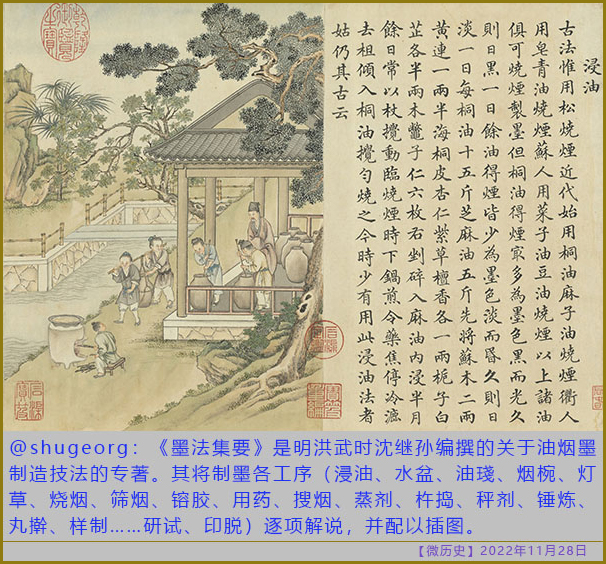 浸油
古法惟用松燒煙近代始用桐油麻子油燒煙衢人
用皂青油燒煙蘇人用菜子油豆油燒煙以上諸油
俱可燒煙製墨但桐油得煙㝡多為墨色黑而光久
則日黑一日餘油得煙皆少為墨色淡而昏久則日
淡一日每桐油十五斤芝麻油五斤先將蘇木二兩
黃連一兩半海桐皮杏仁紫草檀香各一兩梔子白
芷各半兩木鱉子仁六枚右剉碎入麻油內浸半月
餘日常以杖攪動臨燒煙時下鍋煎令藥焦停冷漉
去柤傾入桐油攪勻燒之今時少有用此浸油法者
姑仍其古云
@shugeorg：《墨法集要》是明洪武时沈继孙编撰的关于油烟墨
制造技法的专著。其将制墨各工序（浸油、水盆、油琖、烟椀、灯
草、烧烟、筛烟、镕胶、用药、搜烟、蒸剂、杵捣、秤剂、锤炼、
丸擀、样制……研试、印脱）逐项解说，并配以插图。
【微历史】2022年11月28日